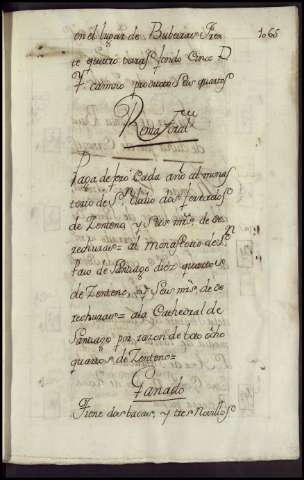 1065
en el lugar de Buberas Tie
te quatro varas fondo Cinco D
Y. camino producto Seis quartos
Renta foral
Paga de foro Cada año al monas
terio de Sn. Paio dos ferrados
de Zenteno y Seis mrs. de de
rechuras= al Monasterio de Sn
Paio de Santiago diez quartos
de Zenteno, y Seis mrs. de de
rechuras= a la Cathedral de
Santiago por razon de bato ocho
quartos de Zenteno=
Ganado
Tiene dos bacas, y tres Novillos